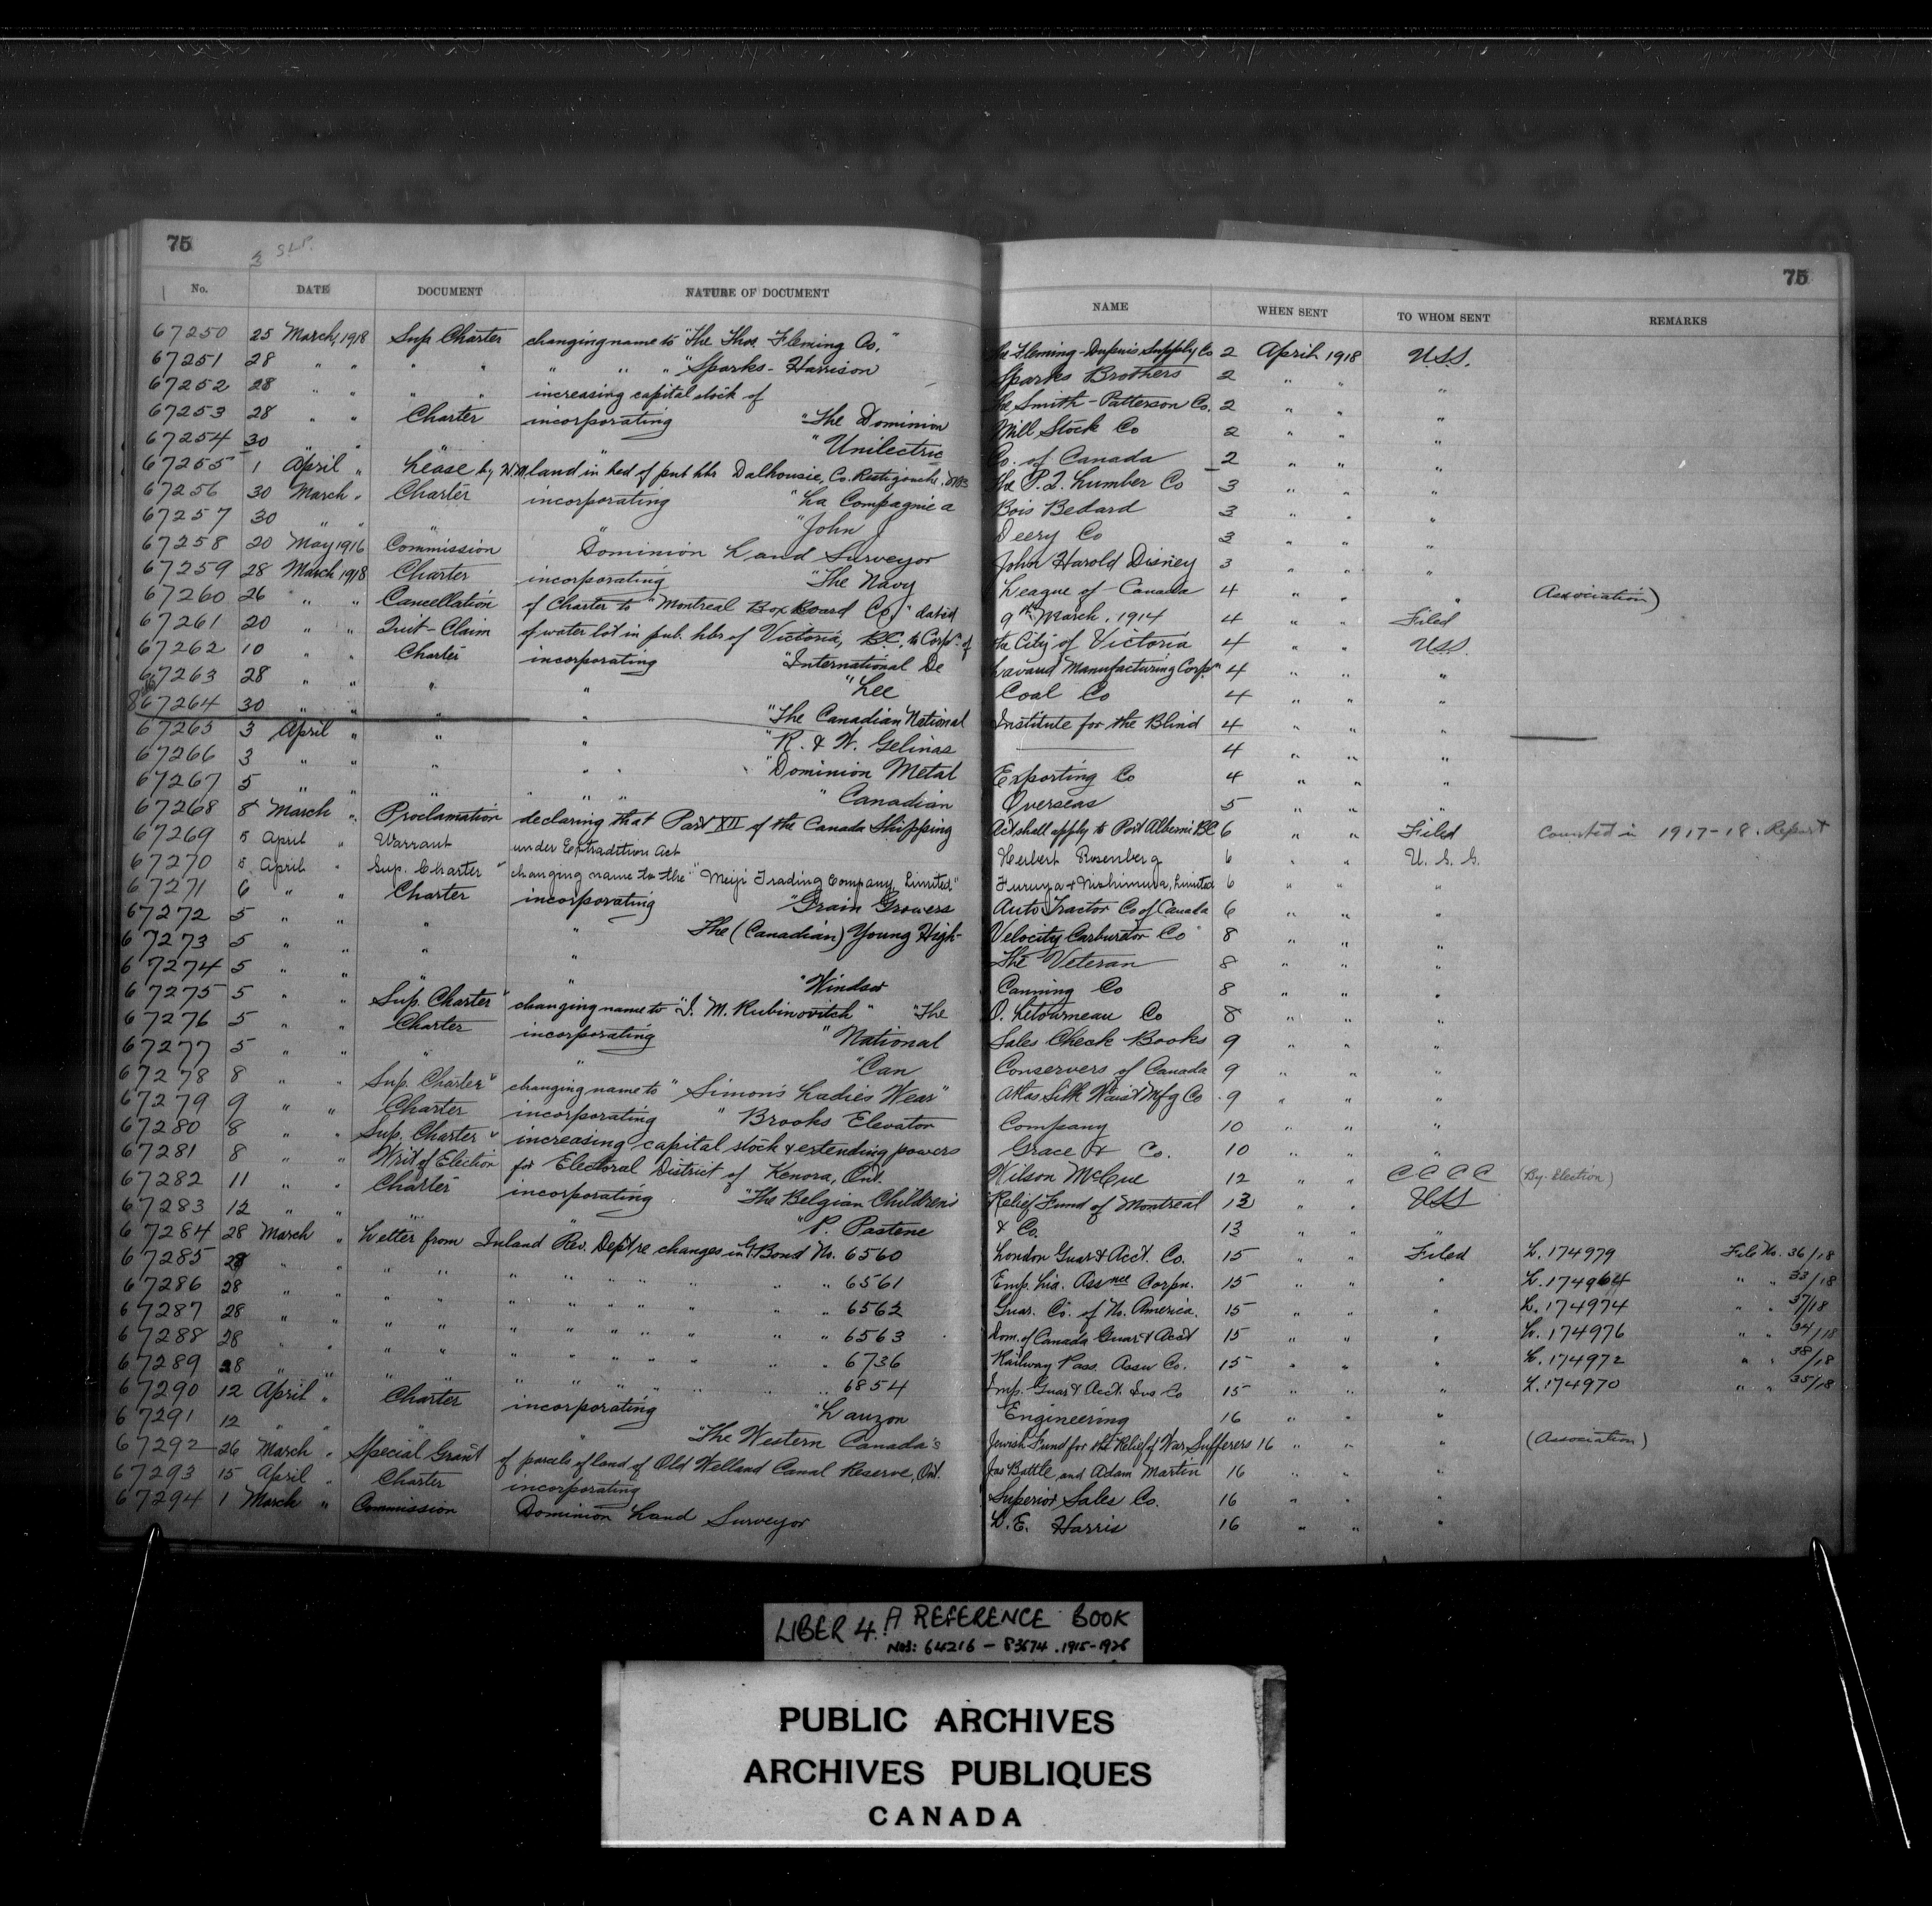 75
3 S.L.P.
75
No. DATE DOCUMENT NATURE OF DOCUMENT NAME WHEN SENT TO WHOM SENT REMARKS
67250 25 March, 1918 Sup Charter changing name to "The Thos. Fleming Co." The Fleming-Dupuis Supply Co 2 April 1918 U.S.S.
67251 28 " " " " " " " "Sparks-Harrison Sparks Brothers 2 " " "
67252 28 " " " " increasing capital stock of The Smith-Patterson Co. 2 " " "
67253 28 " " Charter incorporating "The Dominion Mill Stock Co 2 " " "
67254 30 " " " " "Unilectric Co. of Canada 2 " " "
67255 1 April " Lease by H.M. land in bed of pub hbr Dalhousie, Co. Restigouche, N.B. The P.L. Lumber Co 3 " " "
67256 30 March " Charter incorporating "La Compagnie a Bois Bedard 3 " " "
67257 30 " " " " "John J Deery Co 3 " " "
67258 20 May 1916 Commission Dominion Land Surveyor John Harold Disney 3 " " "
67259 28 March 1918 Charter incorporating "The Navy League of Canada 4 " " " Association)
67260 26 " " Cancellation of Charter to "Montreal Box Board Co," dated 9th March, 1914 4 " " Filed
67261 20 " " Quit-Claim of water lot in pub. hbr of Victoria, B.C., to Corpn of the City of Victoria 4 " " U.S.S.
67262 10 " " Charter incorporating "International De Lavaud Manufacturing Corpn 4 " " "
67263 28 " " " " "Lee Coal Co 4 " " "
67264 30 " " " " "The Canadian National Institute for the Blind 4 " " "
67265 3 April " " " "R. & W. Gelinas 4 " " "
67266 3 " " " " " "Dominion Metal Exporting Co 4 " " "
67267 5 " " " " " " "Canadian Overseas 5 " " "
67268 8 March " Proclamation declaring that Part XII of the Canada Shipping Act shall apply to Port Alberni BC 6 " " Filed Counted in 1917-18. Report
67269 5 April " Warrant under Extradition Act Herbert Rosenberg 6 " " U.S.S.
67270 5 April " Sup. Charter " changing name to the "Meiji Trading Company, Limited" Furuya & Nishimura, Limited 6 " " "
67271 6 " " Charter incorporating "Grain Growers Auto Tractor Co of Canada 6 " " "
67272 5 " " " " The (Canadian) Young High- Velocity Carburetor Co 8 " " "
67273 5 " " " The Veteran 8 " " "
67274 5 " " " " "Windsor Canning Co 8 " " "
67275 5 " " Sup. Charter " changing name to "I. M. Rubinovitch" "The O. Letourneau Co 8 " " "
67276 5 " " Charter incorporating "National Sales Check Books 9 " " "
67277 5 " " " " "Can Conservers of Canada 9 " " "
67278 8 " " Sup. Charter " changing name to "Simon's Ladies Wear" Atlas Silk Waist Mfg Co 9 " " "
67279 9 " " Charter incorporating "Brooks Elevator Company 10 " " "
67280 8 " " Sup. Charter " increasing capital stock & extending powers Grace & Co. 10 " " "
67281 8 " " Writ of Election for Electoral District of Kenora, Ont. Wilson McCue 12 " " C C C C (By-Election)
67282 11 " " Charter incorporating "The Belgian Children's Relief Fund of Montreal 13 " " U.S.S.
67283 12 " " " "P. Pastene & Co. 13 " " "
67284 28 March " Letter from Inland Rev. Dept re changes in G. Bond No. 6560 London Guar & Acct. Co. 15 " " Filed L. 174979 File No. 36/18
67285 28 " " " " " " " " " " " 6561 Emp. Lia. Assnce Corpn. 15 " " " L. 174964 " " 33/18
67286 28 " " " " " " " " " " " 6562 Guar. Co. of No. America. 15 " " " L. 174974 " " 37/18
67287 28 " " " " " " " " " " " 6563 Dom. of Canada Guar & Acct 15 " " " L. 174976 " " 34/18
67288 28 " " " " " " " " " " " 6736 Railway Pass. Assu Co. 15 " " " L. 174972 " " 38/18
67289 28 " " " " " " " " " " " 6854 Imp. Guar & Acct. Ins Co 15 " " " L. 174970 " " 35/18
67290 12 April " Charter incorporating "Lauzon Engineering 16 " " "
67291 12 " " " " "The Western Canada's Jewish Fund for the Relief of War Sufferers 16 " " " (Association)
67292 26 March " Special Grant of parcels of land of Old Welland Canal Reserve, Ont. Jas Battle and Adam Martin 16 " " "
67293 15 April " Charter incorporating Superior Sales Co. 16 " " "
67294 1 March " Commission Dominion Land Surveyor W. E. Harris 16 " " "
LIBER 4. A REFERENCE BOOK
NOS: 64216 - 83674. 1915-1926
PUBLIC ARCHIVES
ARCHIVES PUBLIQUES
CANADA